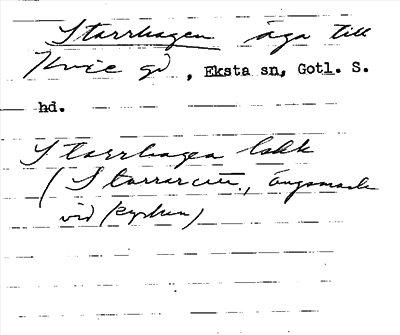 Starrhagen äga till
Kvie gd, Eksta sn, Gotl. S.
hd.
Starrhagen
(Starrar, ängsmark
vid kyrkan)